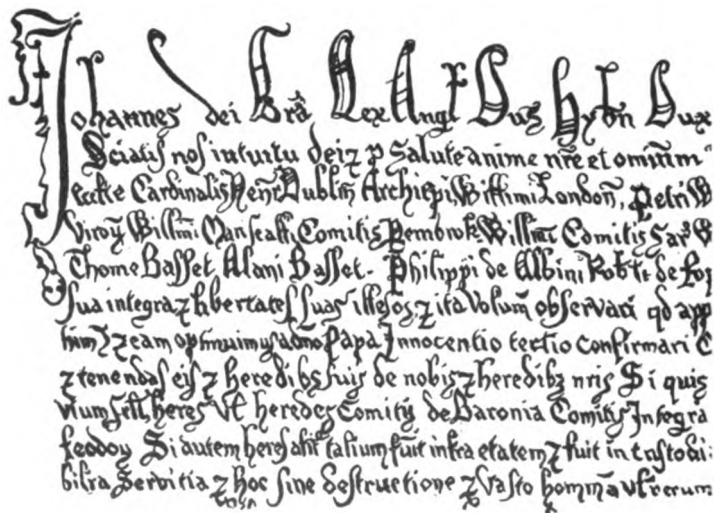 Johannes dei Grā Rex Angł Dns Hybn Dux
Sciatis nos intuitu dei ⁊ p salute anime nr̄e et omnium
eccłie Cardinalis Henr̄ Dublin̄ Archiepi, Willimi London̄, Petri W
Viroȝ Willmi Marescalli Comitis Pembrok, Willmi Comitis Sar̄
Thome Basset Alani Basset. Philippi de Albini Robti de Rop
sua integra ⁊ libertates suas illesas, ⁊ ita volum observari qd app
eam optinuimus a dno Papa Innocentio tertio confirmari
⁊ tenendas eis ⁊ heredibȝ suis de nobis ⁊ heredibȝ nris Si quis
heres vł heredes Comitis de Baronia Comitis Integra
feodoȝ Si autem heres talium fūit infra etatem ⁊ fuit in custodi
servitia ⁊ hoc sine destructione ⁊ vasto hominū vł rerum